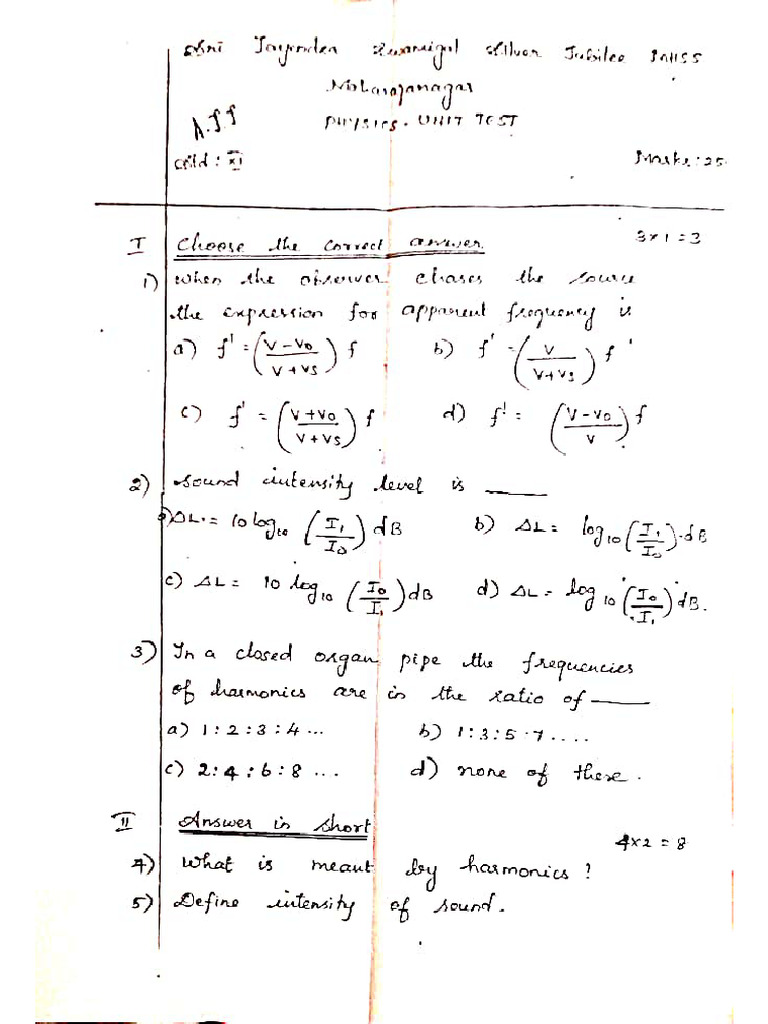 Sri Jayendra Swamigal Silver Jubilee
Maharajanagar
PHYSICS - UNIT TEST
Std : XI
Marks : 25
I Choose the correct answer. 3 x 1 = 3
1) When the observer chases the source
the expression for apparent frequency is
a) f' = (V - V0 / V + Vs) f b) f' = (V / V + Vs) f
c) f' = (V + V0 / V + Vs) f d) f' = (V - V0 / V) f
2) Sound intensity level is ____
a) ΔL = 10 log10 (I1 / I0) dB b) ΔL = log10 (I1 / I0) dB
c) ΔL = 10 log10 (I0 / I1) dB d) ΔL = log10 (I0 / I1) dB.
3) In a closed organ pipe the frequencies
of harmonics are in the ratio of ____
a) 1 : 2 : 3 : 4 ... b) 1 : 3 : 5 : 7 ....
c) 2 : 4 : 6 : 8 ... d) none of these.
II Answer in short 4 x 2 = 8
4) What is meant by harmonics ?
5) Define intensity of sound.